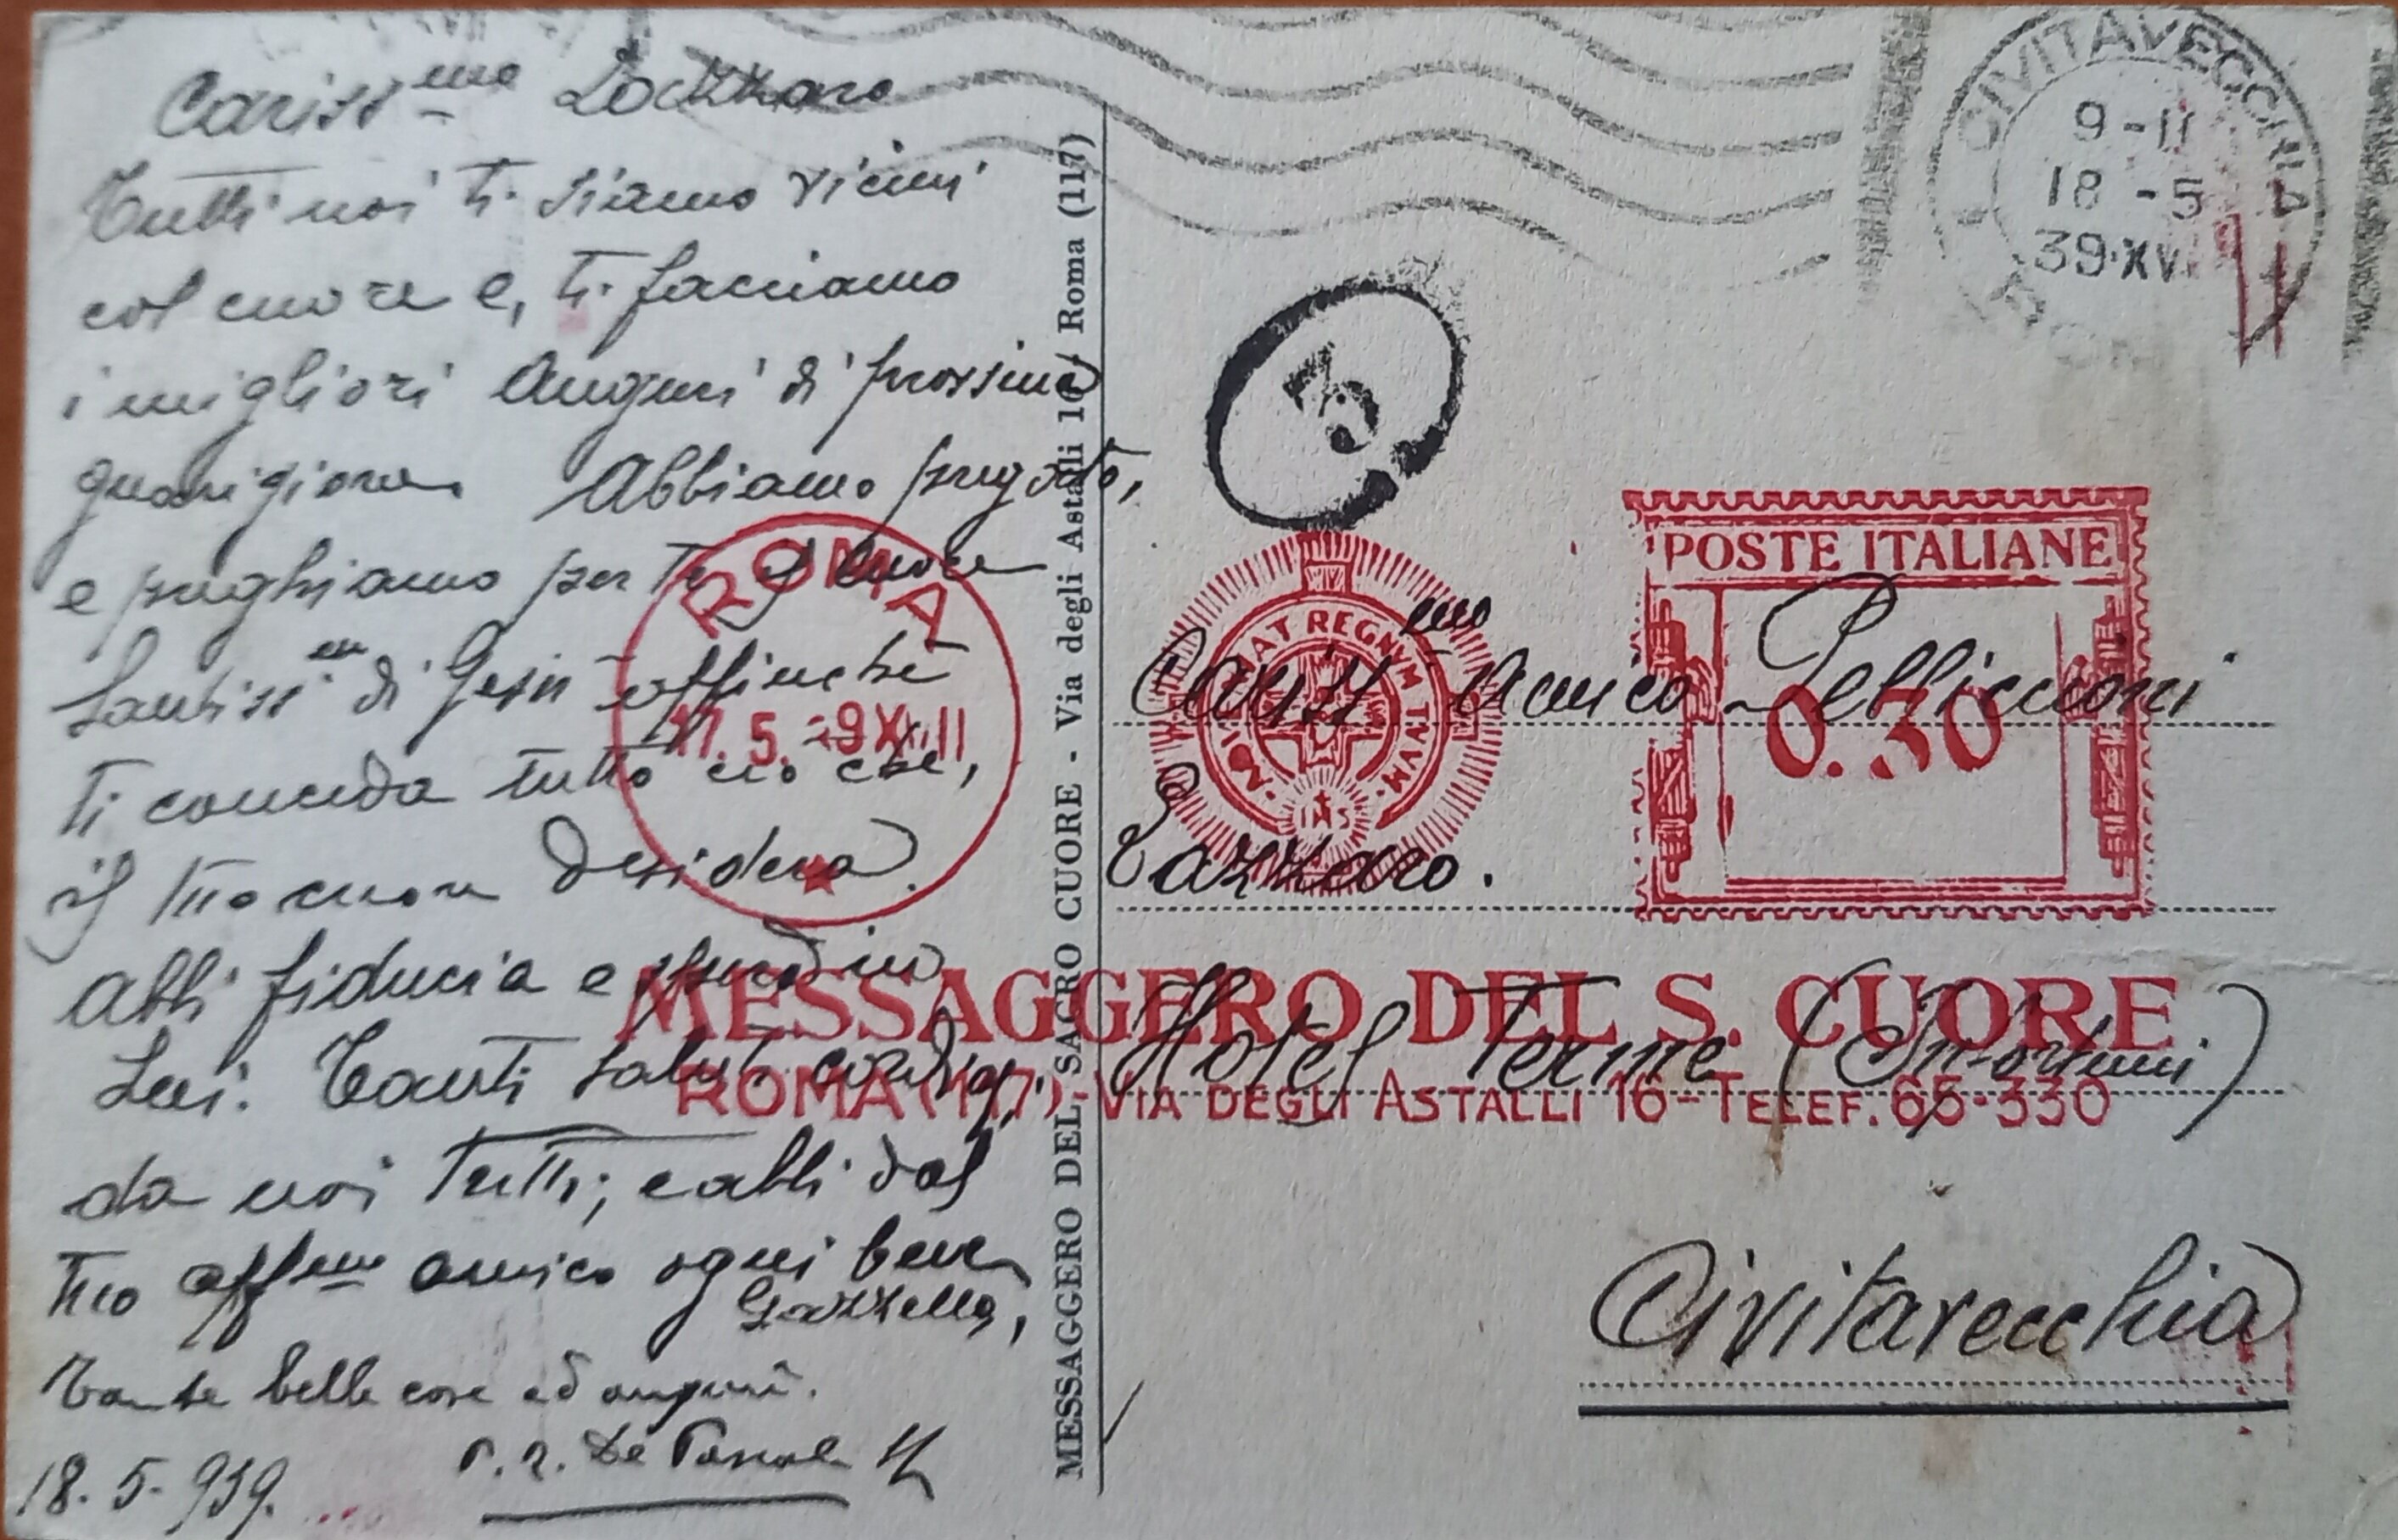 Cariss^mo Lazzaro
Tutti noi ti siamo vicini
col cuore e, ti facciamo
i migliori auguri di prossima
guarigione. Abbiamo pregato,
e preghiamo per te il Cuore
Santiss^mo di Gesù affinché
ti conceda tutto ciò che,
il tuo cuore desidera.
Abbi fiducia e spera in
Lui. Tanti saluti cordiali
da noi tutti; e abbi dal
tuo aff^mo amico ogni bene
Gazzella,
Tante belle cose ed auguri.
De Pascale
18.5.939.
MESSAGGERO DEL SACRO CUORE - Via degli Astalli 16 - Roma (117)
CIVITAVECCHIA
9-11
18-5
39·XVI
ROMA
3
ROMA
17.5.39 XVII
ADVENIAT REGNVM TVVM
XP
IHS
POSTE ITALIANE
0.30
MESSAGGERO DEL S. CUORE
ROMA (117) - VIA DEGLI ASTALLI 16 - TELEF. 65-330
Cariss^mo Amico Pelliccioni
Lazzaro.
Hotel Terme (Infortuni)
Civitavecchia